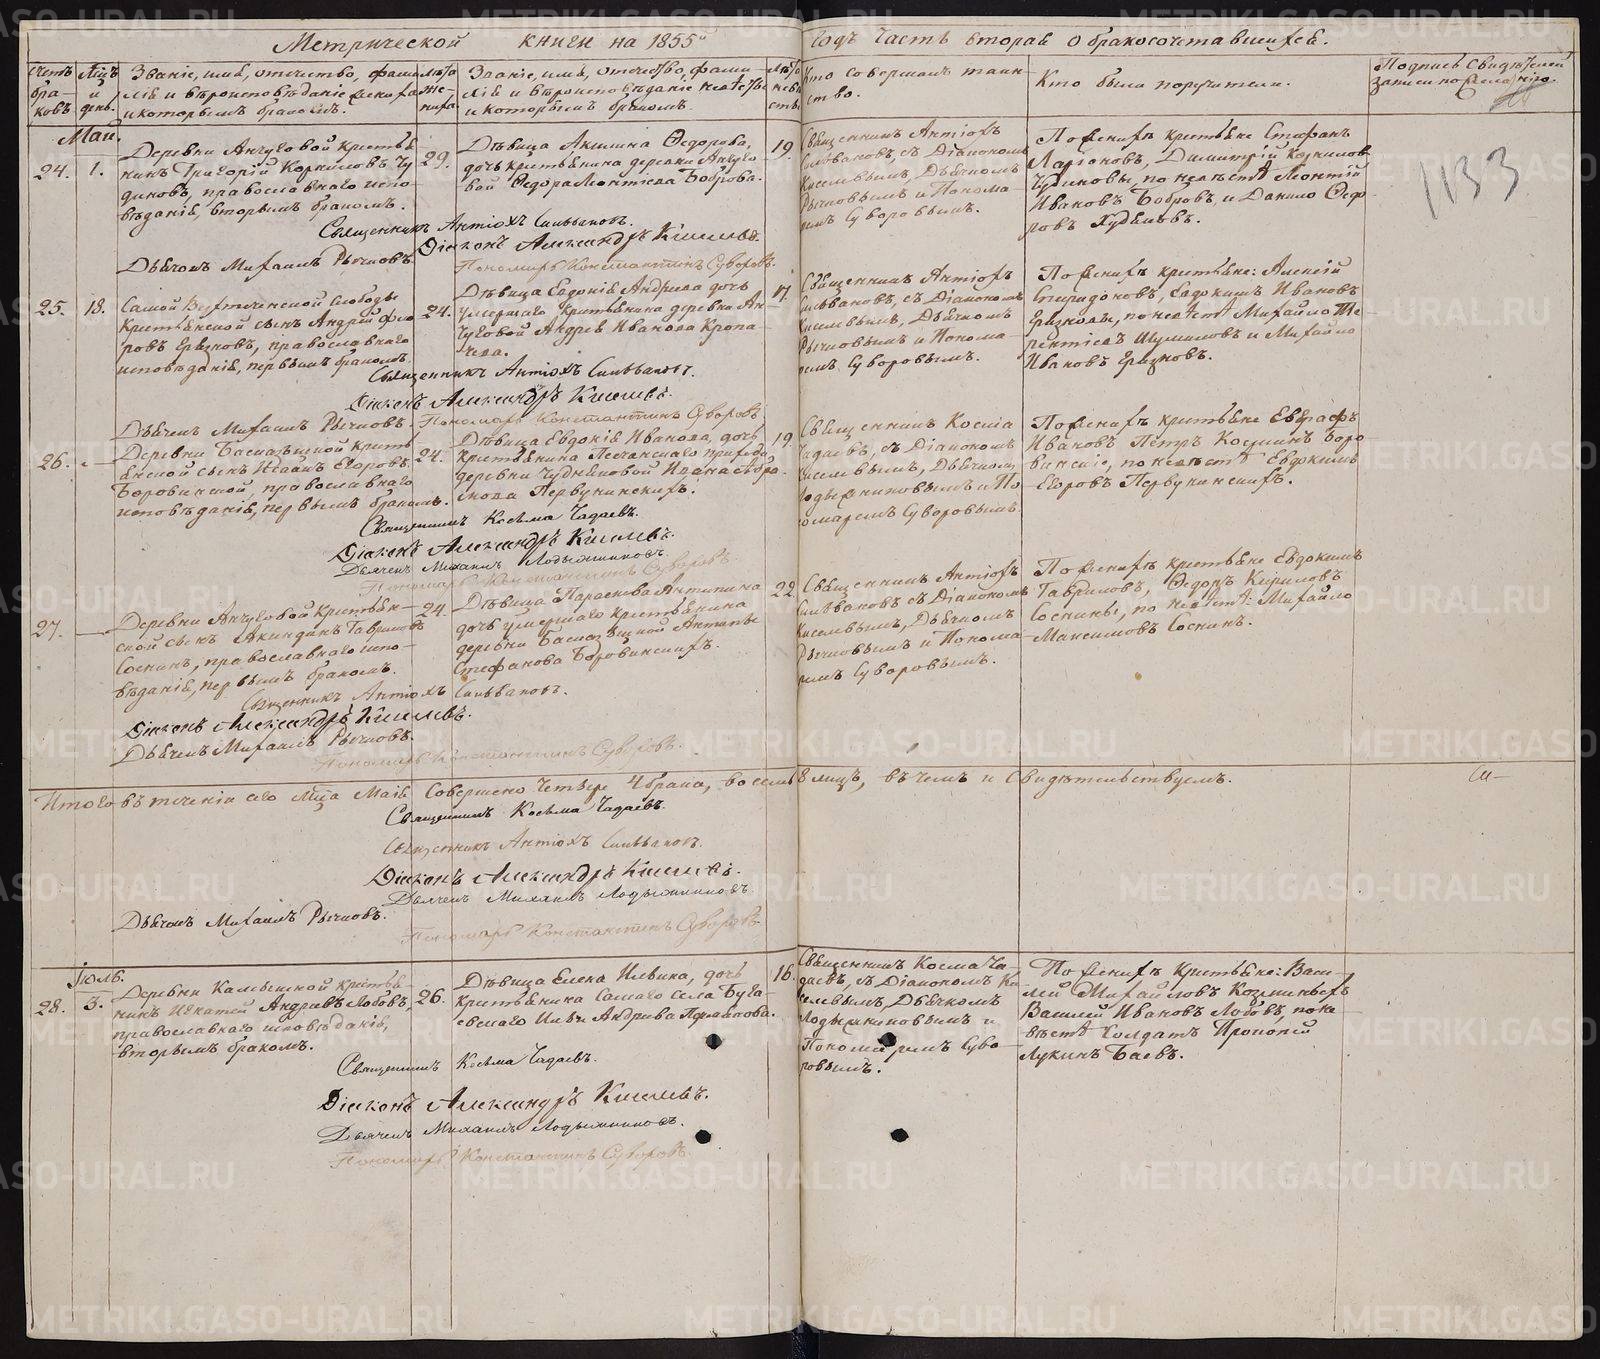 Метрической книги на 1855й годъ часть вторая о бракосочетавшихся.
Счетъ браковъ
Мѣсяцъ и день.
Званіе, имя, отчество, фамилія и вѣроисповѣданіе жениха и которымъ бракомъ.
Лѣта жениха.
Званіе, имя, отечество, фамилія и вѣроисповѣданіе невѣсты и которымъ бракомъ.
Лѣта невѣсты
Кто совершалъ таинство.
Кто были поручители.
Подпись Свидѣтелей записи по желанію.
1133
Май.
24. 1.
Деревни Анчуговой крестьянинъ Григорій Корниловъ Чудиновъ, православнаго исповѣданія, вторымъ бракомъ.
29.
Дѣвица Акилина Ѳедорова, дочь крестьянина деревни Анчуговой Ѳедора Леонтіева Боброва.
19.
Священникъ Антіохъ Сильвановъ, съ Діакономъ Киселевымъ, Дьячкомъ Рычковымъ и Пономаремъ Суворовымъ.
По женихѣ крестьяне Стефанъ Ларіоновъ, Димитрій Корниловъ Чудиновы, по невѣстѣ Леонтій Ивановъ Бобровъ, и Данило Ѳедоровъ Худяковъ.
Священникъ Антіохъ Сильвановъ.
Діаконъ Александръ Киселевъ.
Дьячекъ Михаилъ Рычковъ.
Пономарь Константинъ Суворовъ.
25. 18.
Самой слободы Крестьянской сынъ Андрей Ѳедоровъ Грязновъ, православнаго исповѣданія, первымъ бракомъ.
24.
Дѣвица Евдокія Андреева дочь умершаго крестьянина деревни Анчуговой Андрея Иванова Кропачева.
17.
Священникъ Антіохъ Сильвановъ, съ Діакономъ Киселевымъ, Дьячкомъ Рычковымъ и Пономаремъ Суворовымъ.
По женихѣ крестьяне: Алексій Спиридоновъ, Евдокимъ Ивановъ Грязновы, по невѣстѣ Михайло Терентіевъ Шумиловъ и Михайло Ивановъ Грязновъ.
Священникъ Антіохъ Сильвановъ.
Діаконъ Александръ Киселевъ.
Дьячекъ Михаилъ Рычковъ.
Пономарь Константинъ Суворовъ.
26. —
Деревни крестьянской сынъ Исаакъ Егоровъ Боровинской, православнаго исповѣданія, первымъ бракомъ.
24.
Дѣвица Евдокія Иванова, дочь крестьянина Песчанскаго прихода деревни Чудняковой Ивана Первунинскихъ.
19.
Священникъ Косма Чадаевъ, съ Діакономъ Киселевымъ, Дьячкомъ Лодыжниковымъ и Пономаремъ Суворовымъ.
По женихѣ крестьяне Евграфъ Ивановъ Петръ Косминъ Боровинскіе, по невѣстѣ Евдокимъ Егоровъ Первунинскихъ.
Священникъ Косьма Чадаевъ.
Діаконъ Александръ Киселевъ.
Дьячекъ Михаилъ Лодыжниковъ.
Пономарь Константинъ Суворовъ.
27. —
Деревни Анчуговой крестьянской сынъ Акиндинъ Гавриловъ Соснинъ, православнаго исповѣданія, первымъ бракомъ.
24.
Дѣвица Параскева Антипина дочь умершаго крестьянина деревни Антипы Стефанова Боровинскихъ.
22.
Священникъ Антіохъ Сильвановъ съ Діакономъ Киселевымъ, Дьячкомъ Рычковымъ и Пономаремъ Суворовымъ.
По женихѣ крестьяне Евдокимъ Гавриловъ, Ѳедоръ Кириловъ Соснины, по невѣстѣ: Михайло Максимовъ Соснинъ.
Священникъ Антіохъ Сильвановъ.
Діаконъ Александръ Киселевъ.
Дьячекъ Михаилъ Рычковъ.
Пономарь Константинъ Суворовъ.
Итого въ теченіи сего мѣсяца Маія Совершено Четыре 4 брака, восемь 8 лицъ, въ чемъ и Свидѣтельствуемъ.
Священникъ Косьма Чадаевъ.
Священникъ Антіохъ Сильвановъ.
Діаконъ Александръ Киселевъ.
Дьячекъ Михаилъ Лодыжниковъ.
Дьячекъ Михаилъ Рычковъ.
Пономарь Константинъ Суворовъ
Іюль.
28. 3.
Деревни Камышной крестьянинъ Игнатій Андреевъ Лобовъ, православнаго исповѣданія, вторымъ бракомъ.
26.
Дѣвица Елена Ильина, дочь крестьянина Самаго села Илья Андреева
16.
Священникъ Косма Чадаевъ, съ Діакономъ Киселевымъ, Дьячкомъ Лодыжниковымъ и Пономаремъ Суворовымъ.
По женихѣ крестьяне: Василей Михайловъ Козминыхъ Василей Ивановъ Лобовъ, по невѣстѣ Солдатъ Прокопій Лукинъ Баевъ.
Священникъ Косьма Чадаевъ.
Діаконъ Александръ Киселевъ.
Дьячекъ Михаилъ Лодыжниковъ.
Пономарь Константинъ Суворовъ.
METRIKI.GASO-URAL.RU